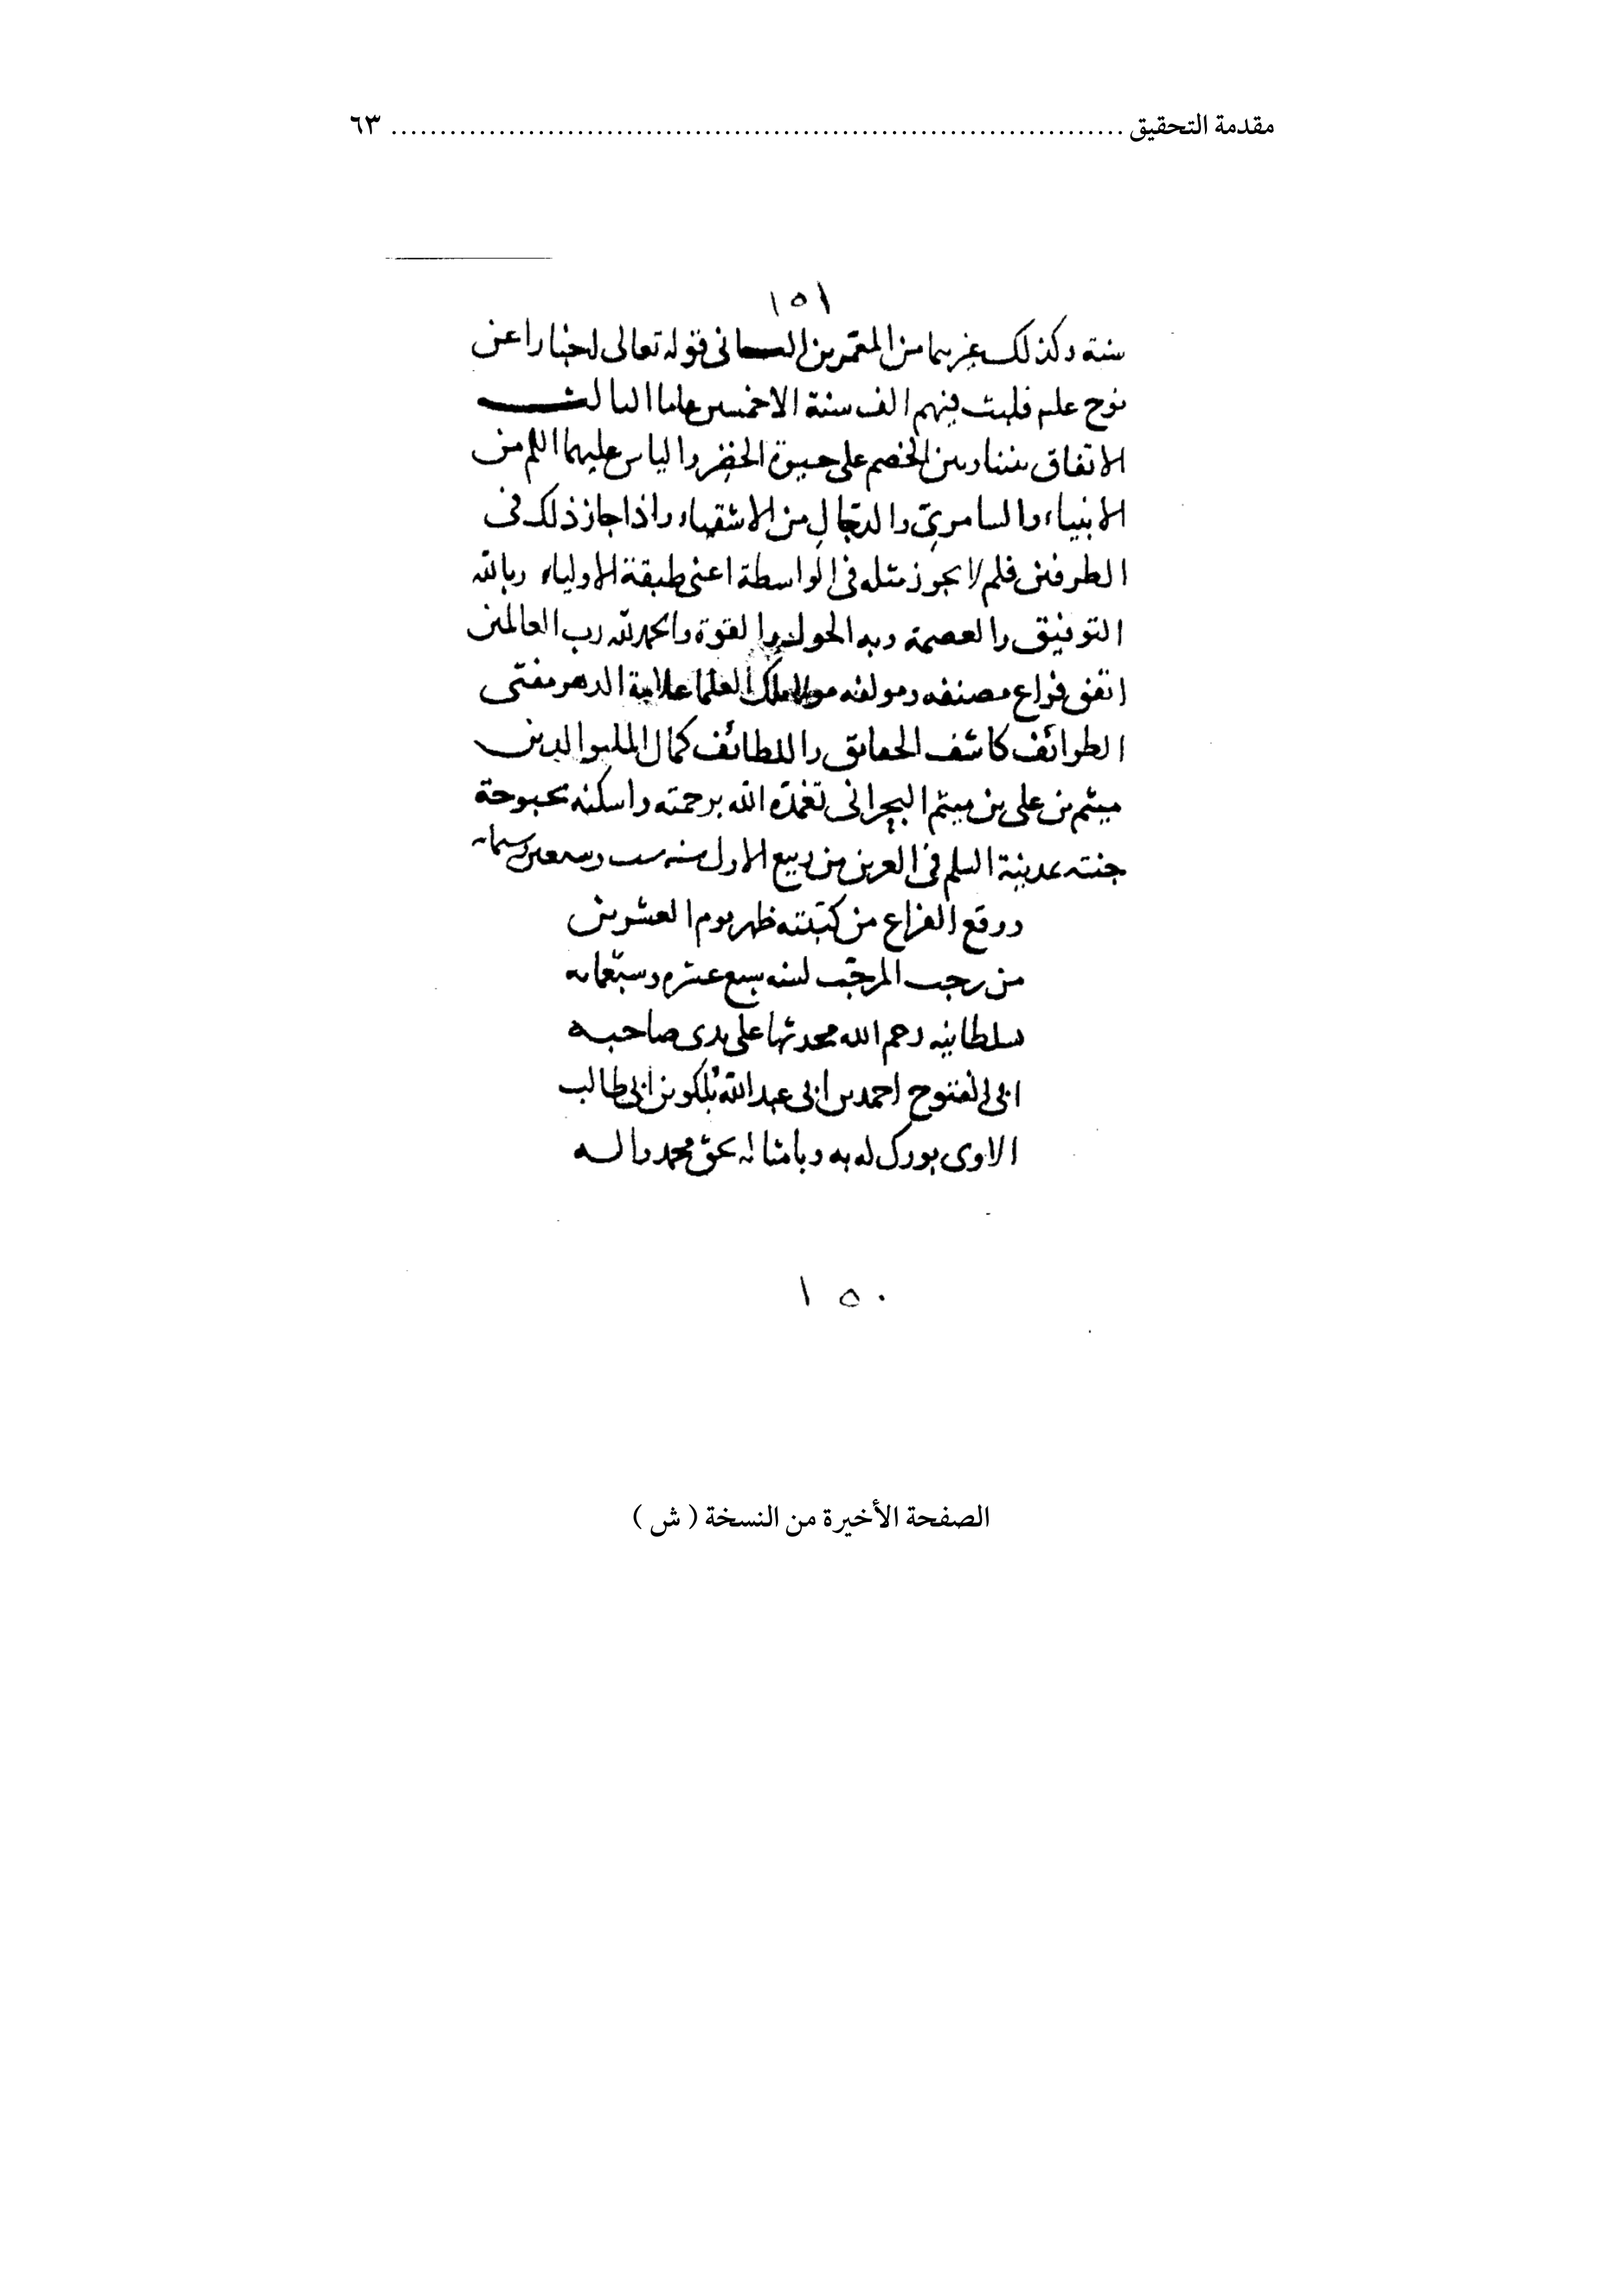 مقدمة التحقيق ........................................................................... ٦٣
١٥١
سنة وكذلك غيرهما من المعمرين الثانى قوله تعالى اخبارا عن
نوح علم فلبث فيهم الف سنة الا خمسين عاما الثالث
الاتفاق بيننا وبين الخصم على حيوة الخضر والياس عليهما السلم من
الانبياء والسامرى والدجال من الاشقياء واذا جاز ذلك فى
الطرفين فلم لا يجوز مثله فى الواسطة اعنى طبقة الاولياء وبالله
التوفيق والعصمة وبه الحول والقوة والحمد لله رب العالمين
اتفق فراغ مصنفه ومولفه مولانا ملك العلما علامة الدهر مفتى
الطوائف كاشف الحقايق واللطائف كمال المله والدين
ميثم بن على بن ميثم البحرانى تغمده الله برحمته واسكنه بحبوحة
جنته بمدينة السلم فى العشرين من ربيع الاول سنه ست وسبعين وستمايه
ووقع الفراغ من كتبته ظهر يوم العشرين
من رجب المرجب لسنه سبع عشره وسبعمايه
سلطانيه رحم الله محدثها على يدى صاحبه
ابى الفتوح احمد بن ابى عبد الله بلكو بن ابى طالب
الاوى بورك له به وبامثاله بحق محمد واله
١٥٠
الصفحة الأخيرة من النسخة ( ش )